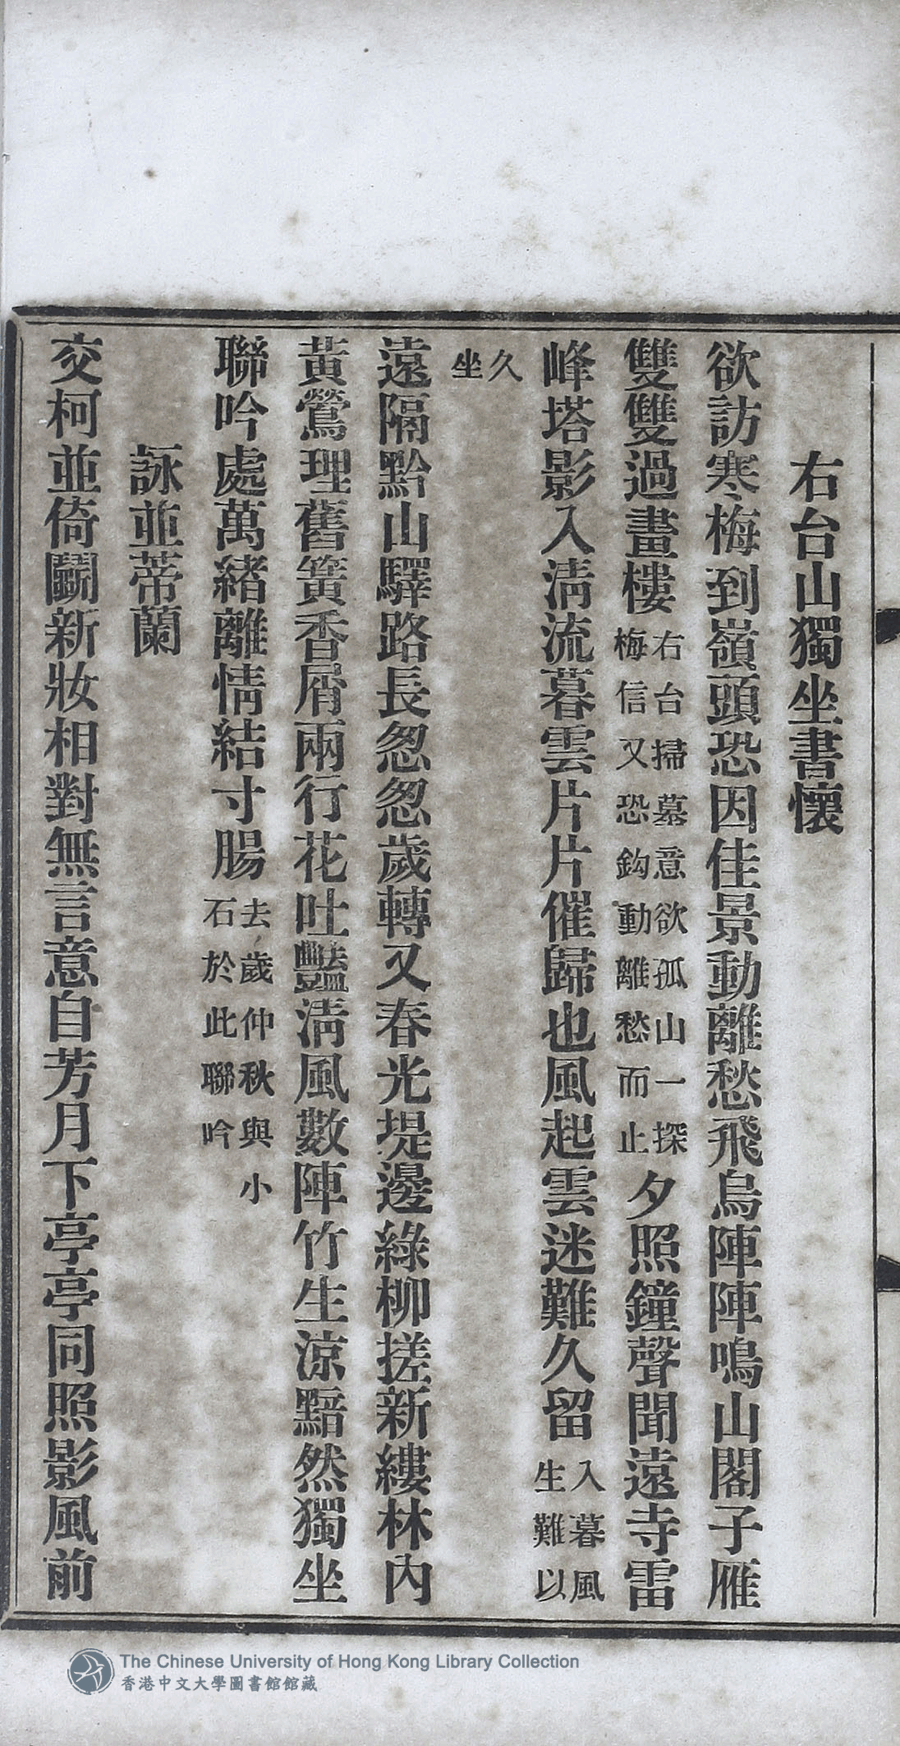 右台山獨坐書懷
欲訪寒梅到嶺頭恐因佳景動離愁飛烏陣陣鳴山閣子雁
雙雙過畫樓右台掃墓意欲孤山一探梅信又恐鈎動離愁而止夕照鐘聲聞遠寺雷
峰塔影入淸流暮雲片片催歸也風起雲迷難久留入暮風生難以
久坐
遠隔黔山驛路長怱怱歲轉又春光堤邊綠柳搓新縷林內
黃鶯理舊簧香屑兩行花吐豔淸風數陣竹生涼黯然獨坐
聯吟處萬緒離情結寸腸去歲仲秋與小石於此聯吟
詠並蒂蘭
交柯並倚鬭新妝相對無言意自芳月下亭亭同照影風前
The Chinese University of Hong Kong Library Collection
香港中文大學圖書館館藏